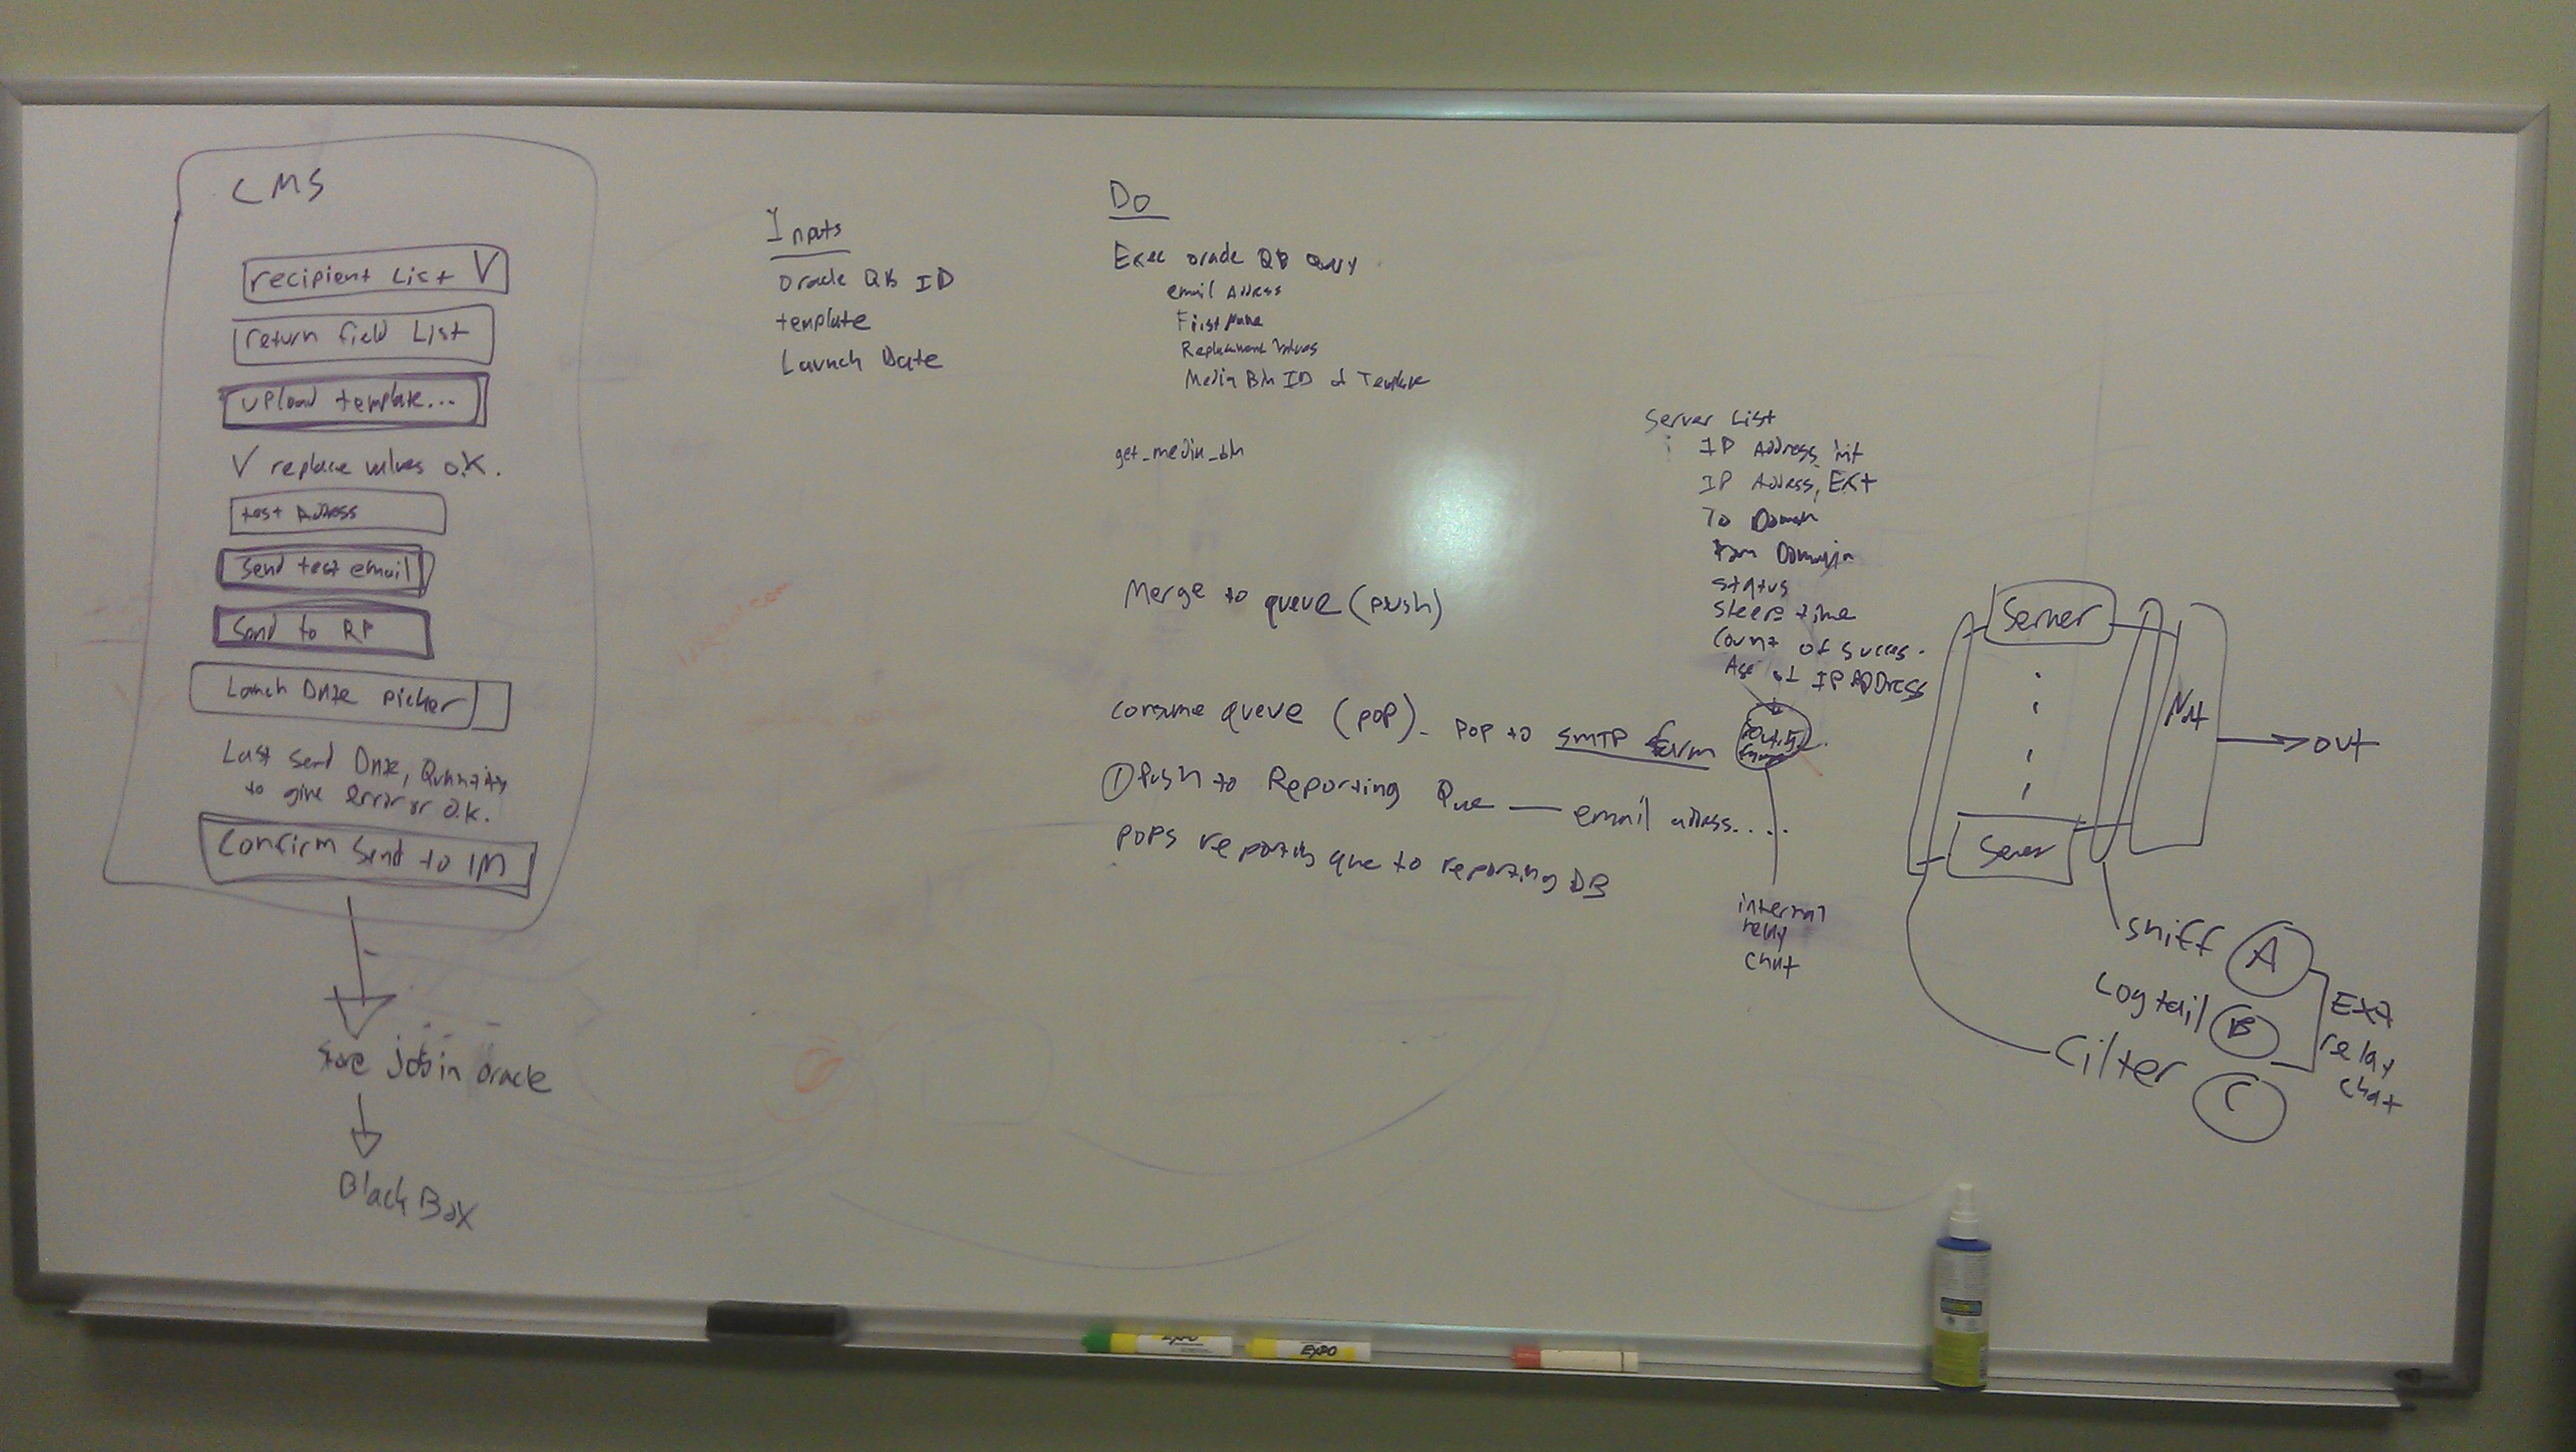 CMS
recipient List V
return field List
upload template...
V replace values o.K.
test Address
Send test email
Send to RP
Lanch Date picker
Last Send Date, Quantity
to give error or o.k.
Confirm Send to IM
Store job in oracle
Black Box
Inputs
oracle QB ID
template
Launch Date
Do
Exec oracle QB Query
email Address
First Name
Replacement Values
Media Bin ID of Template
get_media_bin
Merge to queue (push)
consume queue (pop). pop to SMTP farm
① Push to Reporting Que — email address....
pops reporting que to reporting DB
Server List
IP Address, int
IP Address, Ext
To Domain
Domain
status
Sleep time
Count of Succes.
Age of IP ADDress
internal
relay
chat
Server
Server
Nat
out
sniff A
Log tail B
filter C
Ext
relay
chat
EXPO
EXPO